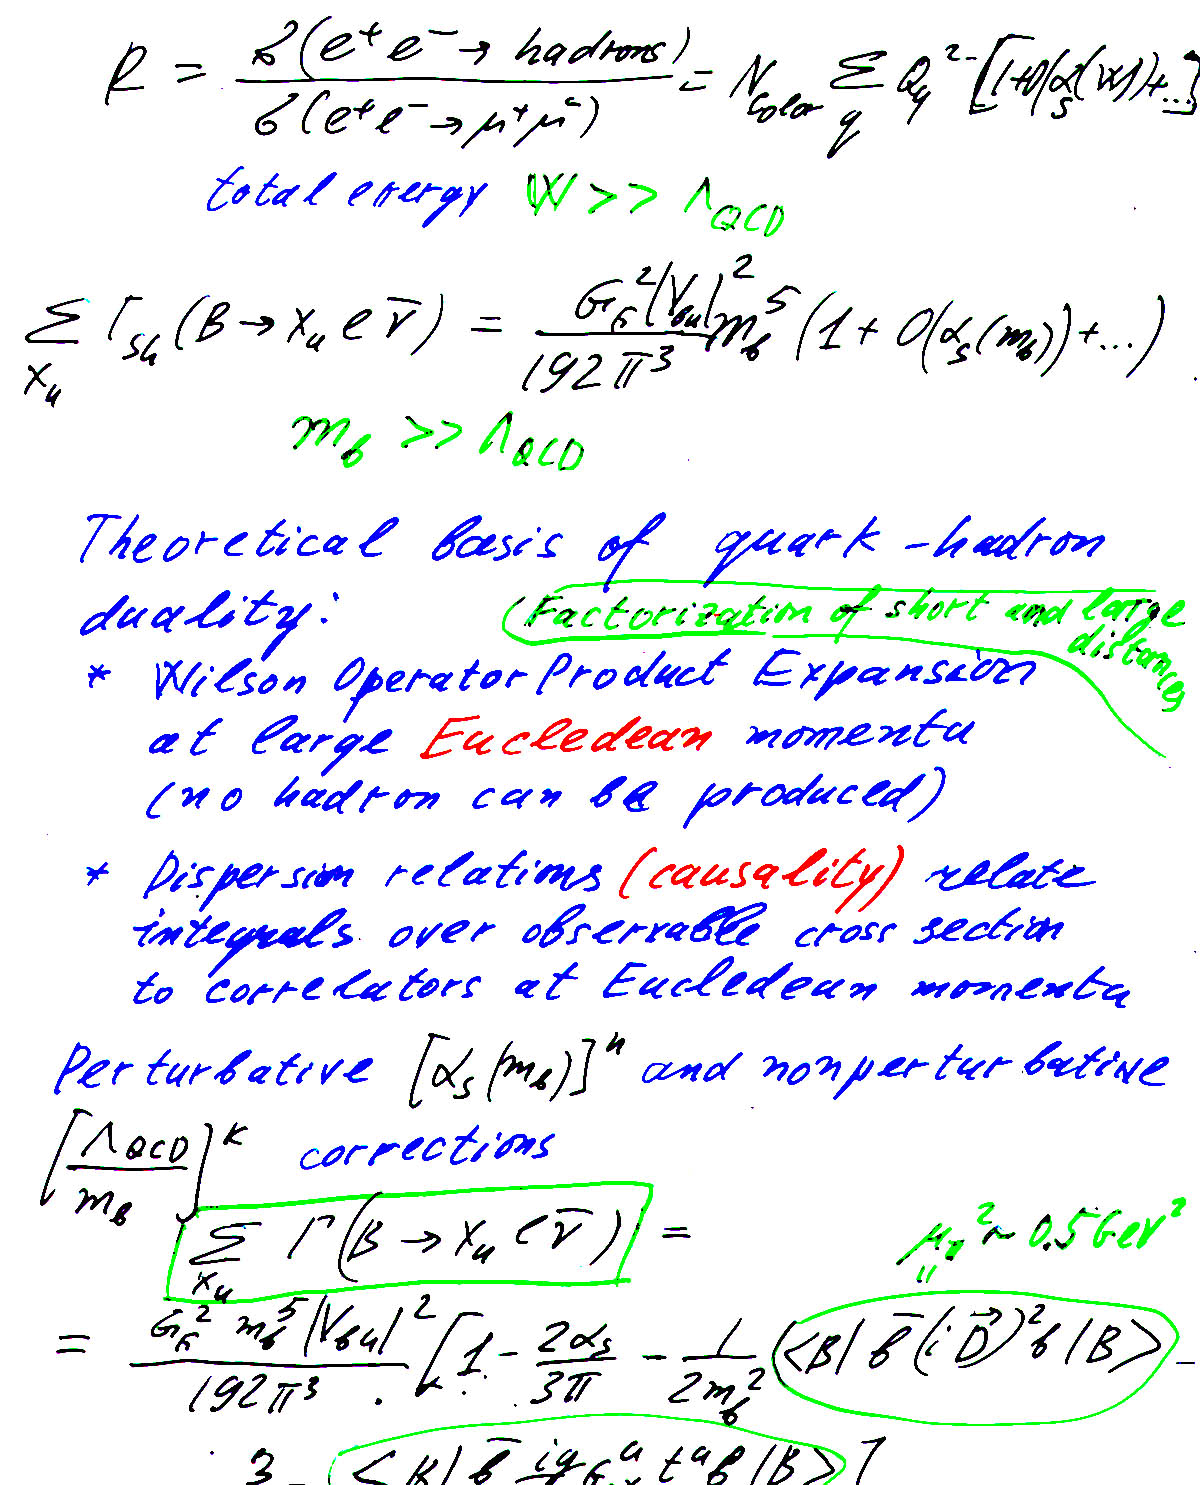 R = σ(e⁺e⁻ → hadrons) / σ(e⁺e⁻ → μ⁺μ⁻) = N_color Σ_q Q_q² [1+O(α_s(W))+...]
total energy W >> Λ_QCD
Σ_{X_u} Γ_sh (B → X_u e ν̄) = G_F² |V_bu|² m_b⁵ / 192π³ (1 + O(α_s(m_b)) + ...)
m_b >> Λ_QCD
Theoretical basis of quark-hadron
duality:
(Factorization of short and large
distances
* Wilson Operator Product Expansion
at large Eucledean momenta
(no hadron can be produced)
* Dispersion relations (causality) relate
integrals over observable cross section
to correlators at Eucledean momenta
Perturbative [α_s(m_b)]ⁿ and nonperturbative
[Λ_QCD / m_b]^k corrections
Σ_{X_u} Γ(B → X_u e ν̄) =
μ_π² ~ 0.5 GeV²
= G_F² m_b⁵ |V_bu|² / 192π³ · [1 - 2α_s/3π - 1/2m_b² <B| b̄ (iD⃗)² b |B> -